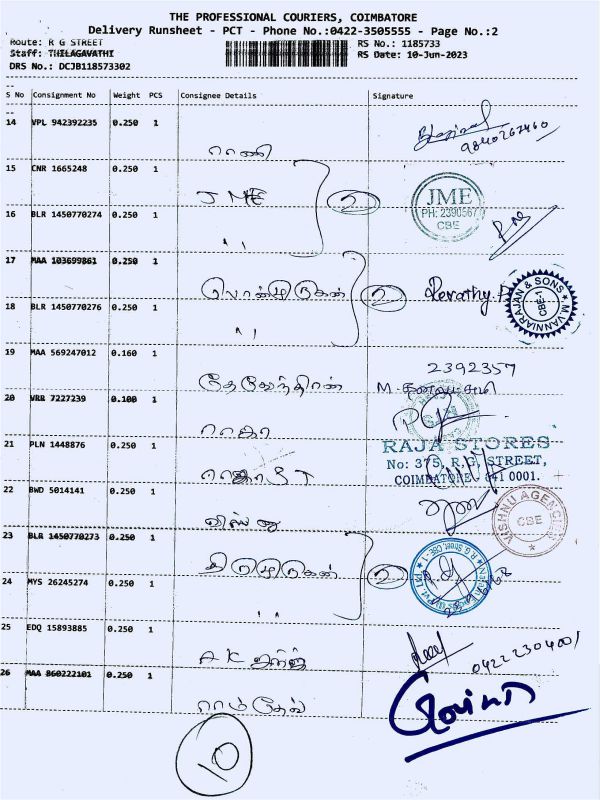 THE PROFESSIONAL COURIERS, COIMBATORE
Delivery Runsheet - PCT - Phone No.:0422-3505555 - Page No.:2
Route: R G STREET RS No.: 1185733
Staff: THILAGAVATHI RS Date: 10-Jun-2023
DRS No.: DCJB118573302
S No Consignment No Weight PCS Consignee Details Signature
14 VPL 942392235 0.250 1
ராணி
15 CNR 1665248 0.250 1
JME 2 JME
PH: 2390567
CBE
16 BLR 1450770274 0.250 1
" "
17 MAA 103699861 0.250 1
பொன்முருகன் 2 Revathy.P M.VANNIARAJAN & SONS
18 BLR 1450770276 0.250 1
" "
19 MAA 569247012 0.160 1 2392357
20 VRR 7227239 0.100 1
ராஜா
RAJA STORES
21 PLN 1448876 0.250 1 No: 375, R.G. STREET,
COIMBATORE - 641 0001.
22 BWD 5014141 0.250 1
விஸ்னு VISHNU AGENCIES CBE
23 BLR 1450770273 0.250 1
திருமுருகன் 2
24 MYS 26245274 0.250 1
" "
25 EDQ 15893885 0.250 1
AK 04222304001
26 MAA 860222101 0.250 1
ராம்தேவ்
10